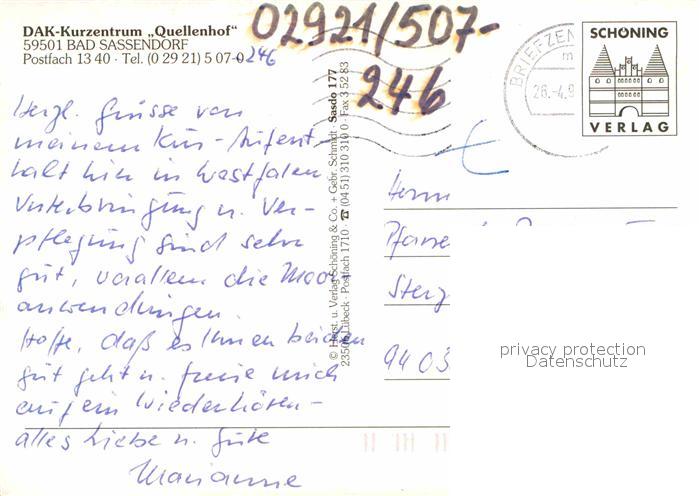 DAK-Kurzentrum „Quellenhof“
59501 BAD SASSENDORF
Postfach 13 40 · Tel. (0 29 21) 5 07-0 246
02921/507-
246
BRIEFZEN
26.-4.9
SCHÖNING
VERLAG
Herzl. Grüsse von
meinem Kur-Aufent-
halt hier in Westfalen
Unterbringung u. Ver-
pflegung sind sehr
gut, vorallem die Moor-
anwendungen.
Hoffe, daß es Ihnen beiden
gut geht u. freue mich
auf ein Wiederhören-
alles Liebe u. Gute
Marianne
© Horst. u. Verlag Schöning & Co. + Gebr. Schmidt · Sasdo 177
23506 Lübeck · Postfach 1710 · ☎ (04 51) 310 310 0 · Fax 3 52 83
Herrn
Pfarre
94 03
privacy protection
Datenschutz